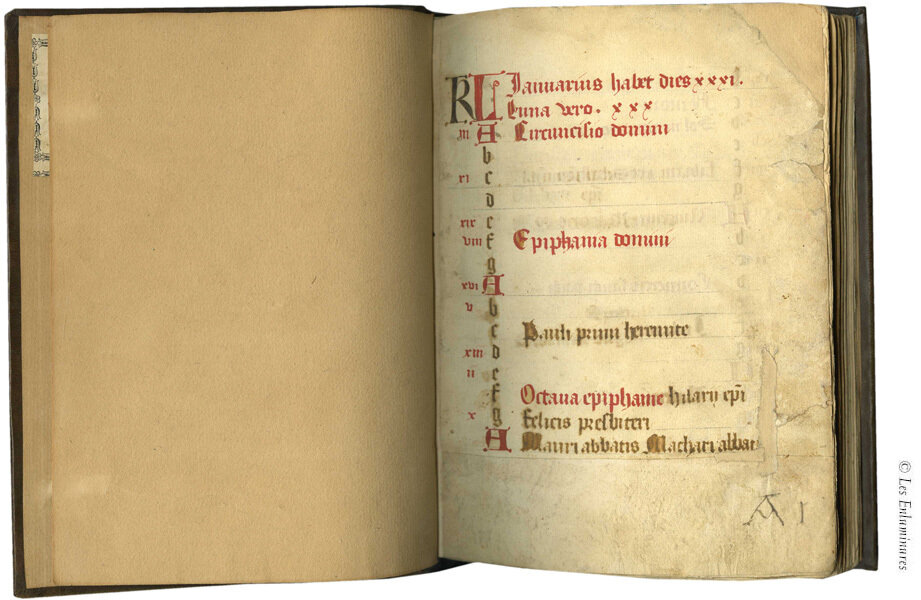 KL Januarius habet dies xxxi.
Luna vero. xxx
iii A Circumcisio domini
b
xi c
d
xix e
viii f Epiphania domini
g
xvi A
v b
c Pauli primi heremite
xiii d
ii e
f Octava epiphanie hilarii epi
x g felicis presbiteri
A Mauri abbatis Macharii abbat
A 1
© Les Enluminures